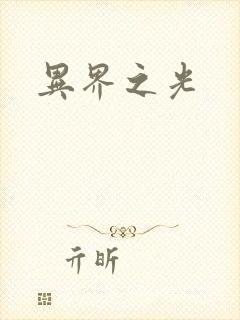 異界之光
亓昕